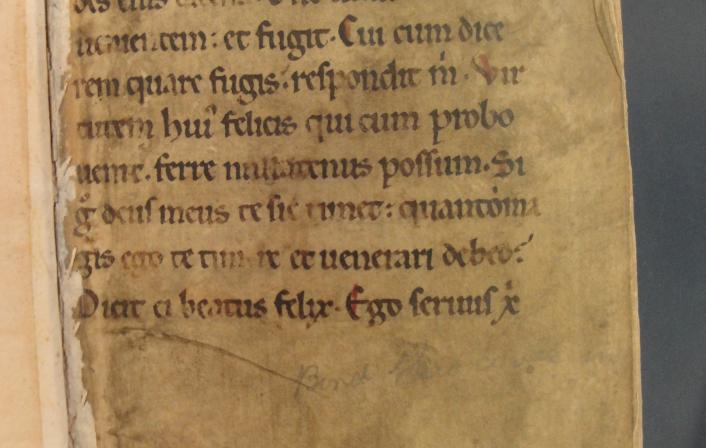 uenientem: et fugit. Cui cum dice
rem quare fugis: respondit m̄. Vir
tutem hui᷒ felicis qui cum probo
uenit. ferre nullatenus possum. Si
g̊ deus meus te sic timet: quantoma
gis ego te timere et uenerari debeo?
Dicit ei beatus felix. Ego seruus x̄
Bind